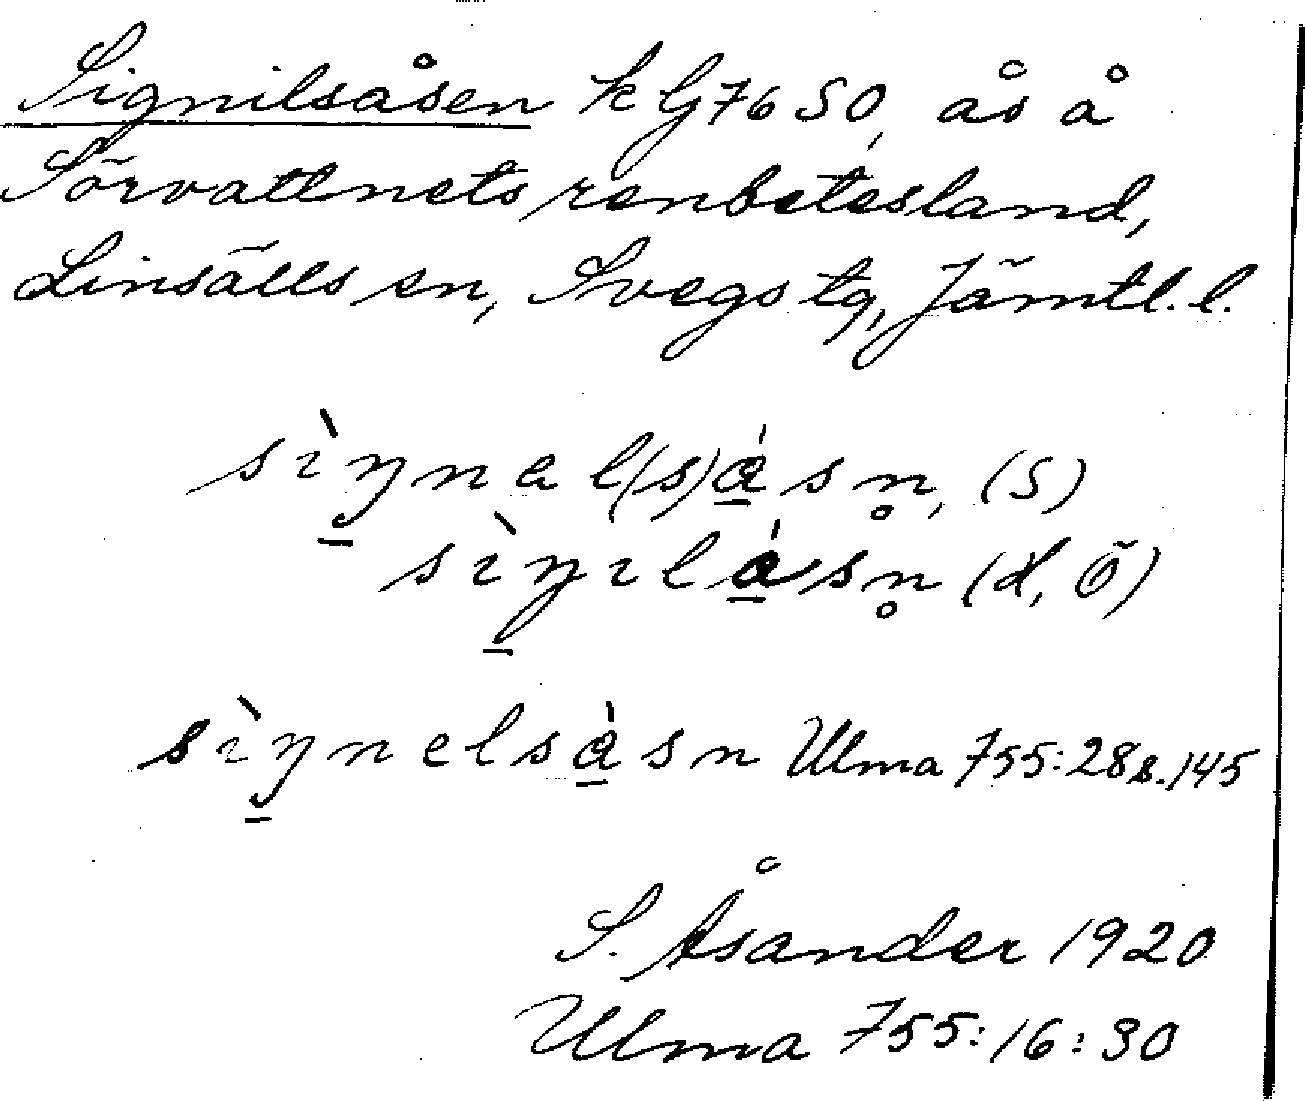 Signilsåsen k G 76 SO, ås å
Sörvattnets renbetesland,
Linsälls sn, Svegs tg, Jämtl. l.
sìŋnal(s)ǻsn̥, (S)
sìŋılǻsn̥ (d, Ö)
sìŋnelså̀sn Ulma 755:28 s. 145
S. Åsander 1920
Ulma 755:16:30